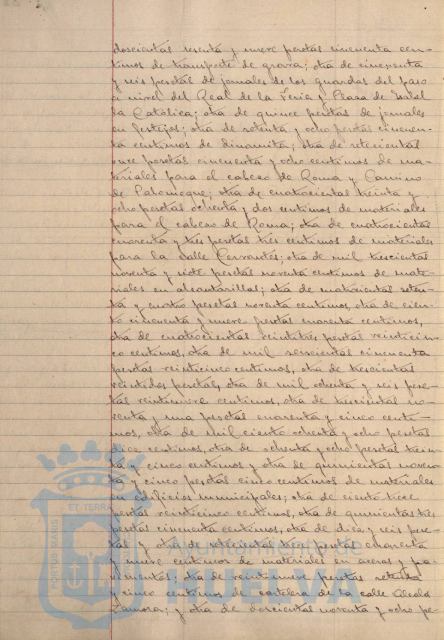 doscientas sesenta y nueve pesetas cincuenta cen-
timos de transporte de grava; otra de cincuenta
y seis pesetas de jornales de los guardas del paso
a nivel del Real de la Feria y Plaza de Isabel
la Católica; otra de quince pesetas de jornales
en festejos; otra de setenta y ocho pesetas cincuen-
ta centimos de dinamita; otra de setecientas
once pesetas cincuenta y ocho centimos de ma-
teriales para el cabezo de Roma y Camino
de; otra de cuatrocientas treinta y
ocho pesetas ochenta y dos centimos de materiales
para el cabezo de Roma; otra de cuatrocientas
cuarenta y tres pesetas tres centimos de materiales
para la calle Cervantes; otra de mil trescientas
noventa y siete pesetas noventa centimos de mate-
riales en alcantarillas; otra de cuatrocientas seten-
ta y cuatro pesetas noventa centimos, otra de cien-
to cincuenta y nueve pesetas cuarenta centimos,
otra de cuatrocientas veintitres pesetas veinticin-
co centimos, otra de mil seiscientas cincuenta
pesetas veinticinco centimos, otra de trescientas
veintidos pesetas, otra de mil ochenta y seis pese-
tas veintinueve centimos, otra de trescientas no-
venta y una pesetas cuarenta y cinco centi-
mos, otra de mil ciento ochenta y ocho pesetas
diez centimos, otra de ochenta y ocho pesetas trein-
ta y cinco centimos y otra de quinientas noven-
ta y cinco pesetas cinco centimos de materiales
en edificios municipales; otra de ciento trece
pesetas veinticinco centimos, otra de quinientas tres
pesetas cincuenta centimos, otra de diez y seis pese-
tas y otra de setecientas tres pesetas cuarenta
y nueve centimos de materiales en aceras y pa-
vimentos; otra de veintinueve pesetas setenta
y cinco centimos de cartelera de la calle Alcalá
Zamora; y otra de doscientas noventa y ocho pe-
PORTUS MARIS
ET TERRAE
Ayuntamiento de
HUELVA